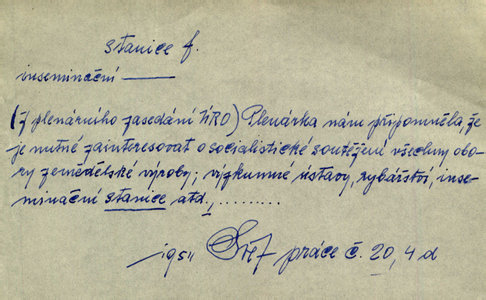 stanice f.
inseminační ——
(Z plenárního zasedání ÚRO) Plenárka nám připomněla, že
je nutné zainteresovat o socialistické soutěžení všechny obo-
ry zemědělské výroby; výzkumné ústavy, rybářství, inse-
minační stanice atd., .........
1951 Svět práce č. 20, 4 d